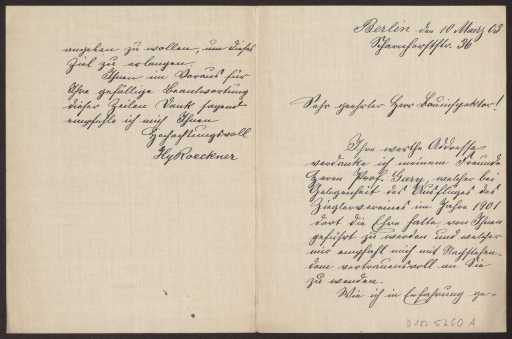 Berlin den 10 März 03
Scharnhorststr. 36
Sehr geehrter Herr Bauinspektor!
Ihre werthe Addresse
verdanke ich meinem Freunde
Herrn Prof. Gary, welcher bei
Gelegenheit des Ausfluges des
Zieglervereines im Jahre 1901
dort die Ehre hatte, von Ihnen
geführt zu werden und welcher
mir empfahl mich mit Nachstehen-
dem vertrauensvoll an Sie
zu wenden.
Wie ich in Erfahrung ge-
angeben zu wollen, um dieses
Ziel zu erlangen.
Ihnen im Voraus für
Ihre gefällige Beantwortung
dieser Zeilen Dank sagend
empfehle ich mich Ihnen
Hochachtungsvoll
Hy Koeckner